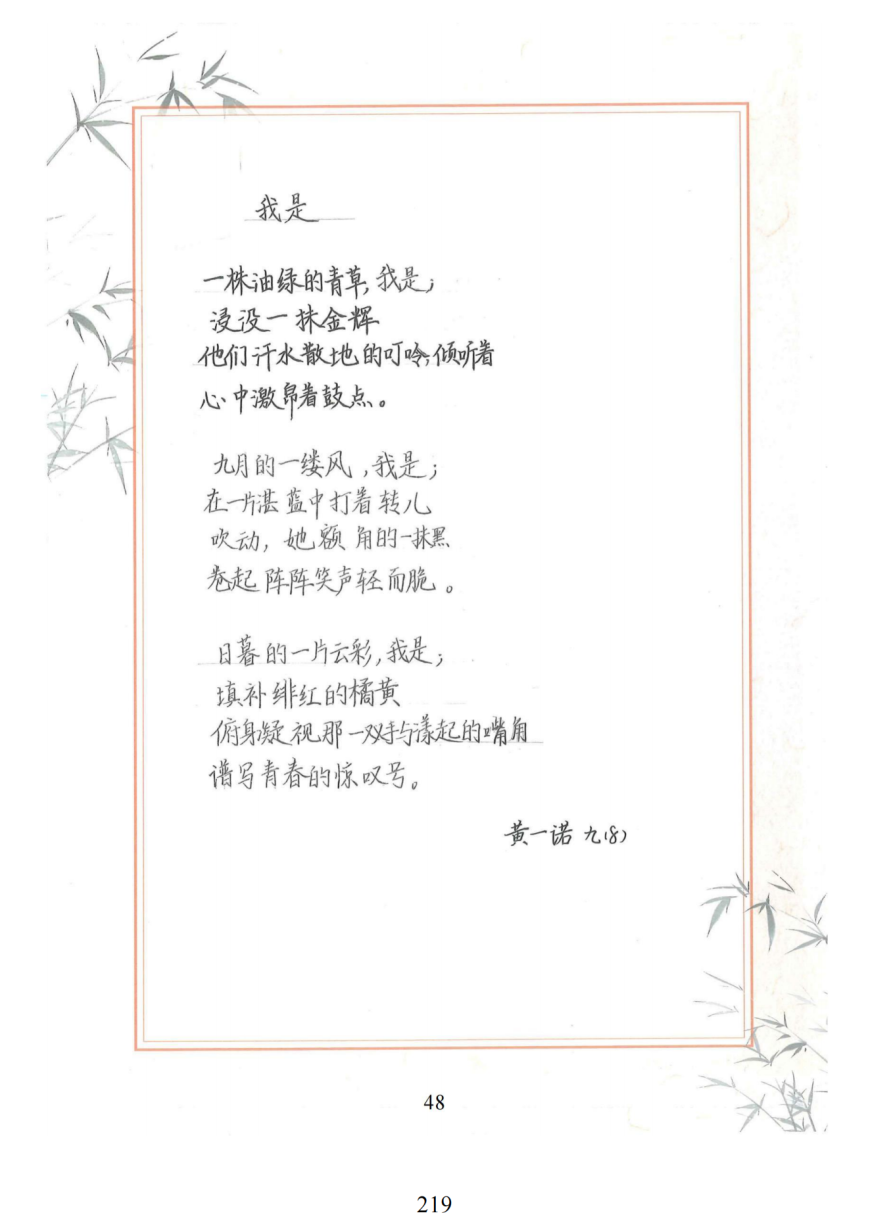 我是
一株油绿的青草,我是;
浸没一抹金辉
他们汗水散地的叮呤,倾听着
心中激昂着鼓点。
九月的一缕风,我是;
在一片湛蓝中打着转儿
吹动,她额角的一抹黑
卷起阵阵笑声轻而脆。
日暮的一片云彩,我是;
填补绯红的橘黄
俯身凝视那一双手与漾起的嘴角
谱写青春的惊叹号。
黄一诺 九(8)
48
219